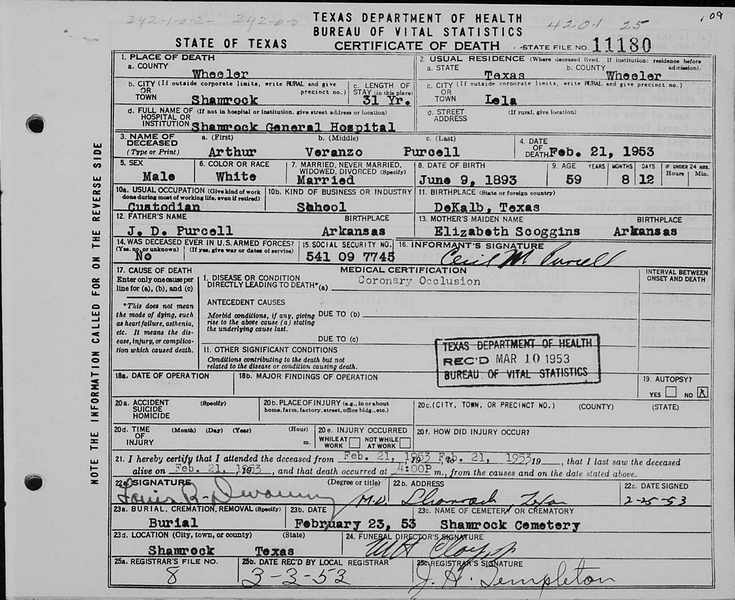 242-1-0-2- 242-0-0
TEXAS DEPARTMENT OF HEALTH
BUREAU OF VITAL STATISTICS
4201 25
.09
STATE OF TEXAS CERTIFICATE OF DEATH STATE FILE NO. 11180
1. PLACE OF DEATH
a. COUNTY
Wheeler
2. USUAL RESIDENCE (Where deceased lived. If institution: residence before admission).
a. STATE
Texas
b. COUNTY
Wheeler
b. CITY (If outside corporate limits, write RURAL and give precinct no.)
OR
TOWN
Shamrock
c. LENGTH OF STAY (in this place)
31 Yr.
c. CITY (If outside corporate limits, write RURAL and give precinct no.)
OR
TOWN
Lela
d. FULL NAME OF (If not in hospital or institution, give street address or location)
HOSPITAL OR
INSTITUTION
Shamrock General Hospital
d. STREET ADDRESS
(If rural, give location)
3. NAME OF DECEASED
(Type or Print)
a. (First)
Arthur
b. (Middle)
Veranzo
c. (Last)
Purcell
4. DATE OF DEATH
Feb. 21, 1953
5. SEX
Male
6. COLOR OR RACE
White
7. MARRIED, NEVER MARRIED, WIDOWED, DIVORCED (Specify)
Married
8. DATE OF BIRTH
June 9, 1893
9. AGE YEARS MONTHS DAYS IF UNDER 24 HRS. Hours Min.
59 8 12
10a. USUAL OCCUPATION (Give kind of work done during most of working life, even if retired)
Custodian
10b. KIND OF BUSINESS OR INDUSTRY
School
11. BIRTHPLACE (State or foreign country)
DeKalb, Texas
12. FATHER'S NAME BIRTHPLACE
J. D. Purcell Arkansas
13. MOTHER'S MAIDEN NAME BIRTHPLACE
Elizabeth Scoggins Arkansas
14. WAS DECEASED EVER IN U.S. ARMED FORCES?
(Yes, no or unknown) (If yes, give war or dates of service)
No
15. SOCIAL SECURITY NO.
541 09 7745
16. INFORMANT'S SIGNATURE
Cecil M Purcell
17. CAUSE OF DEATH
Enter only one cause per line for (a), (b), and (c)
*This does not mean the mode of dying, such as heart failure, asthenia, etc. It means the disease, injury, or complication which caused death.
MEDICAL CERTIFICATION
INTERVAL BETWEEN ONSET AND DEATH
1. DISEASE OR CONDITION
DIRECTLY LEADING TO DEATH*(a)
Coronary Occlusion
ANTECEDENT CAUSES
Morbid conditions, if any, giving rise to the above cause (a) stating the underlying cause last.
DUE TO (b)
DUE TO (c)
11. OTHER SIGNIFICANT CONDITIONS
Conditions contributing to the death but not related to the disease or condition causing death.
TEXAS DEPARTMENT OF HEALTH
REC'D MAR 10 1953
BUREAU OF VITAL STATISTICS
18a. DATE OF OPERATION
18b. MAJOR FINDINGS OF OPERATION
19. AUTOPSY?
YES NO X
20a. ACCIDENT SUICIDE HOMICIDE (Specify)
20b. PLACE OF INJURY (e.g., in or about home, farm, factory, street, office bldg., etc.)
20c. (CITY, TOWN, OR PRECINCT NO.) (COUNTY) (STATE)
20d. TIME OF INJURY (Month) (Day) (Year) (Hour) m.
20e. INJURY OCCURRED
WHILE AT WORK NOT WHILE AT WORK
20f. HOW DID INJURY OCCUR?
21. I hereby certify that I attended the deceased from Feb. 21, 1953 19 to Feb. 21, 1953 19, that I last saw the deceased
alive on Feb. 21, 1953 19, and that death occurred at 4:00P m., from the causes and on the date stated above.
22a. SIGNATURE (Degree or title)
M.D.
22b. ADDRESS
Shamrock Texas
22c. DATE SIGNED
2-25-53
23a. BURIAL, CREMATION, REMOVAL (Specify)
Burial
23b. DATE
February 23, 53
23c. NAME OF CEMETERY OR CREMATORY
Shamrock Cemetery
23d. LOCATION (City, town, or county) (State)
Shamrock Texas
24. FUNERAL DIRECTOR'S SIGNATURE
25a. REGISTRAR'S FILE NO.
8
25b. DATE REC'D BY LOCAL REGISTRAR
3-3-53
25c. REGISTRAR'S SIGNATURE
J. H. Templeton
NOTE THE INFORMATION CALLED FOR ON THE REVERSE SIDE